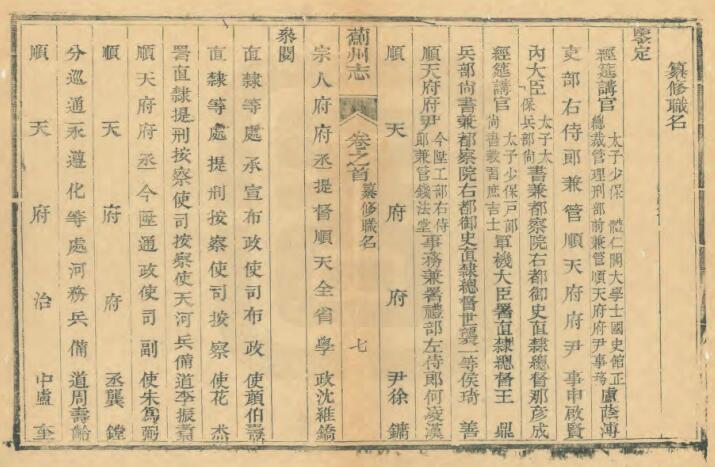 纂修職名
鑒定
經筵講官太子少保體仁閣大學士國史館正總裁管理刑部前兼管順天府府尹事務盧蔭溥
吏部右侍郎兼管順天府府尹事申啟賢
內大臣太子太保兵部尚書兼都察院右都御史直隸總督那彥成
經筵講官太子少保戶部尚書教習庶吉士軍機大臣署直隸總督王鼎
兵部尚書兼都察院右都御史直隸總督世襲一等侯琦善
順天府府尹今陞工部右侍郎兼管錢法堂事務兼署禮部左侍郎何凌漢
順天府府尹徐鏞
薊州志 卷之首 纂修職名 七
宗人府府丞提督順天全省學政沈維鐈
叅閱
直隸等處承宣布政使司布政使顏伯燾
直隸等處提刑按察使司按察使花杰
署直隸提刑按察使司按察使天河兵備道李振翥
順天府府丞今陞通政使司副使朱為弼
順天府府丞龔鏜
分巡通永遵化等處河務兵備道周壽齡
順天府治中盧奎